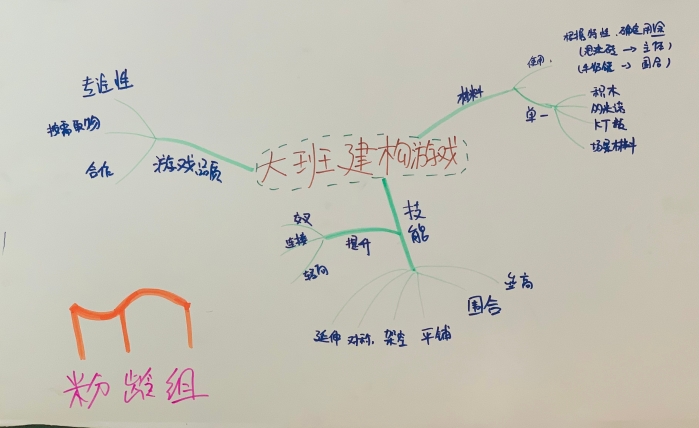 大班建构游戏
材料
使用.
根据特性,确定用途
(泡沫砖 → 主体)
(牛奶罐 → 围合)
单一
积木
KT板
场景材料
技能
提升
交叉
连接
转向
延伸
对称,
架空
平铺
围合
垒高
游戏品质
专注性
按需取物
合作
粉龄组